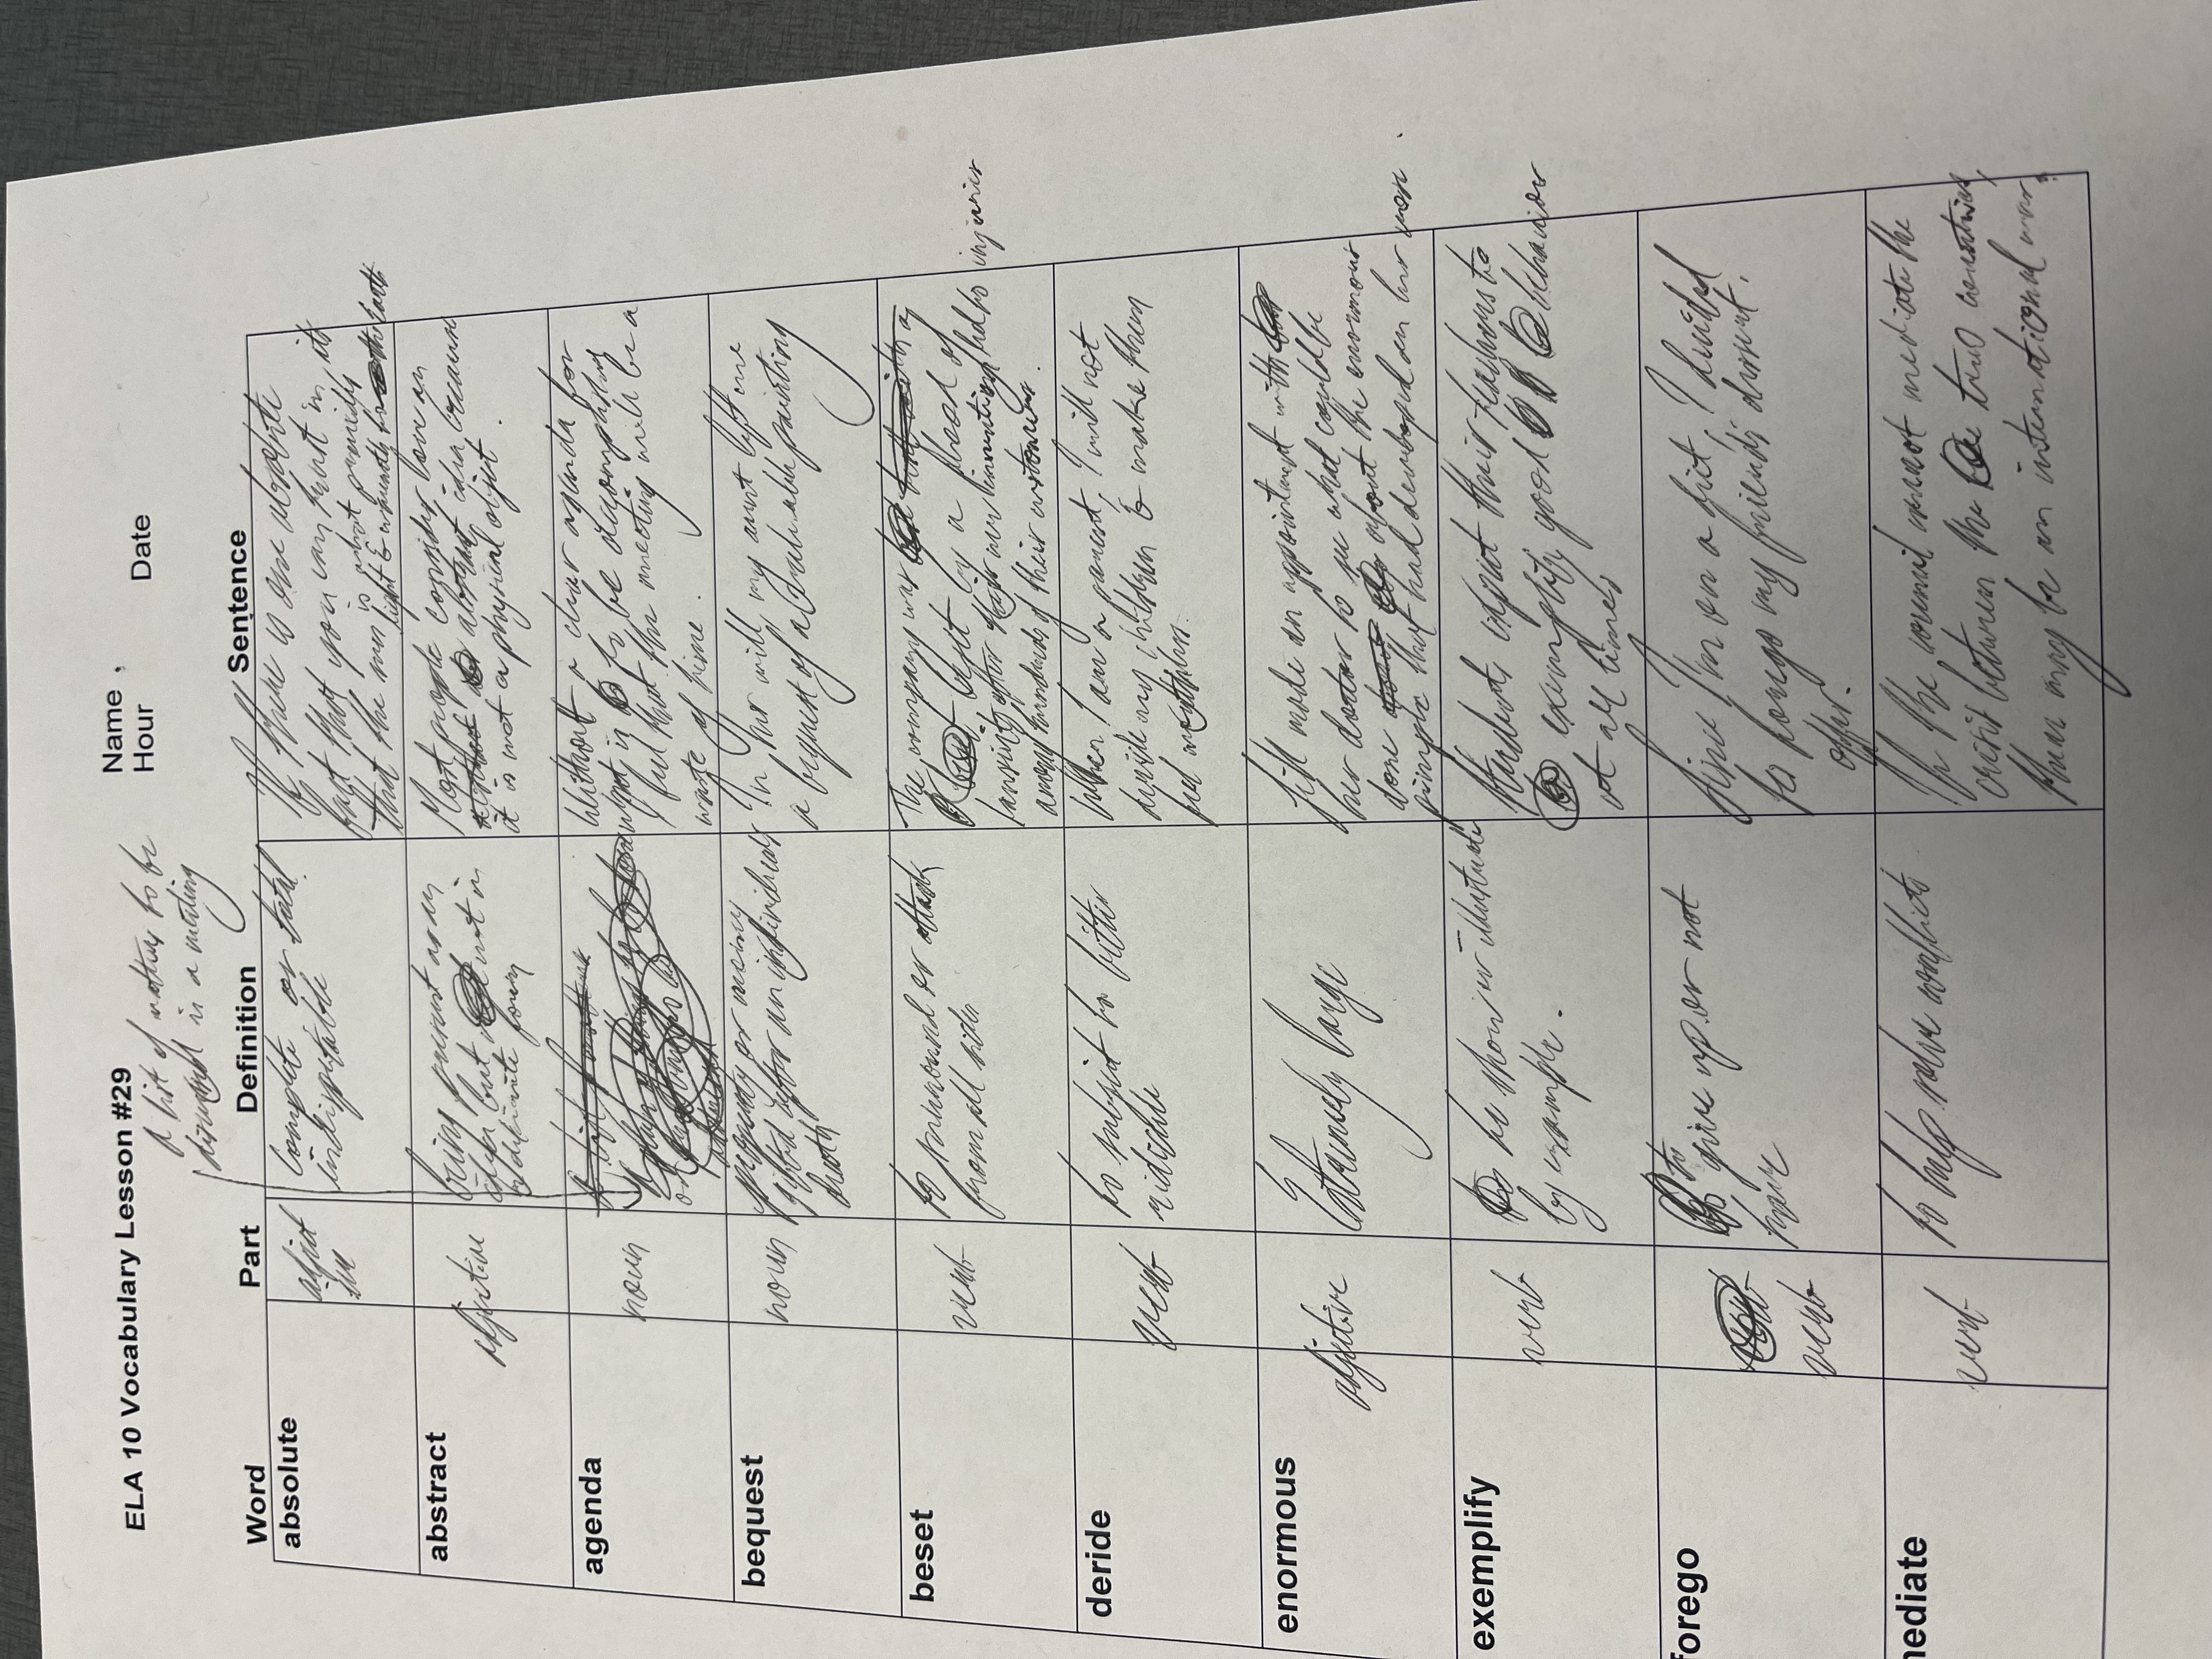 ELA 10 Vocabulary Lesson #29
Name
Hour Date
A list of matters to be
discussed in a meeting
Word Part Definition Sentence
absolute
adject
ive
Complete or total.
indisputable
If there is one absolute
fact that you can trust in, it
is that
that the sun provides
light & warmth for Earth
abstract
adjective
being present as an
idea but not in
definite form
Most people consider love an
abstract idea because
it is not a physical object.
agenda
noun
Without a clear agenda for
what is to be accomplished
I feel that the meeting will be a
waste of time.
bequest
noun
property or money
gifted after an individual's
death
In her will my aunt left me
a bequest of a valuable painting
beset
verb
to surround or attack
from all sides
The company was
beset by a flood of
lawsuits after
injuries
among hundreds of their customers.
deride
verb
to subject to bitter
ridicule
When I am a parent, I will not
deride my children & make them
feel worthless.
enormous
adjective
Extremely large
Jill made an appointment with
her doctor to see what could be
done about the enormous
pimple that had developed on her nose.
exemplify
verb
to show or illustrate
by example.
Students expect their teachers to
exemplify good behavior
at all times
forego
verb
to give up or not
have
Since I'm on a diet, I decided
to forego my friend's dessert
offer.
mediate
verb
to help solve conflicts
If the council cannot mediate the
crisis between the two countries,
there may be an international war.